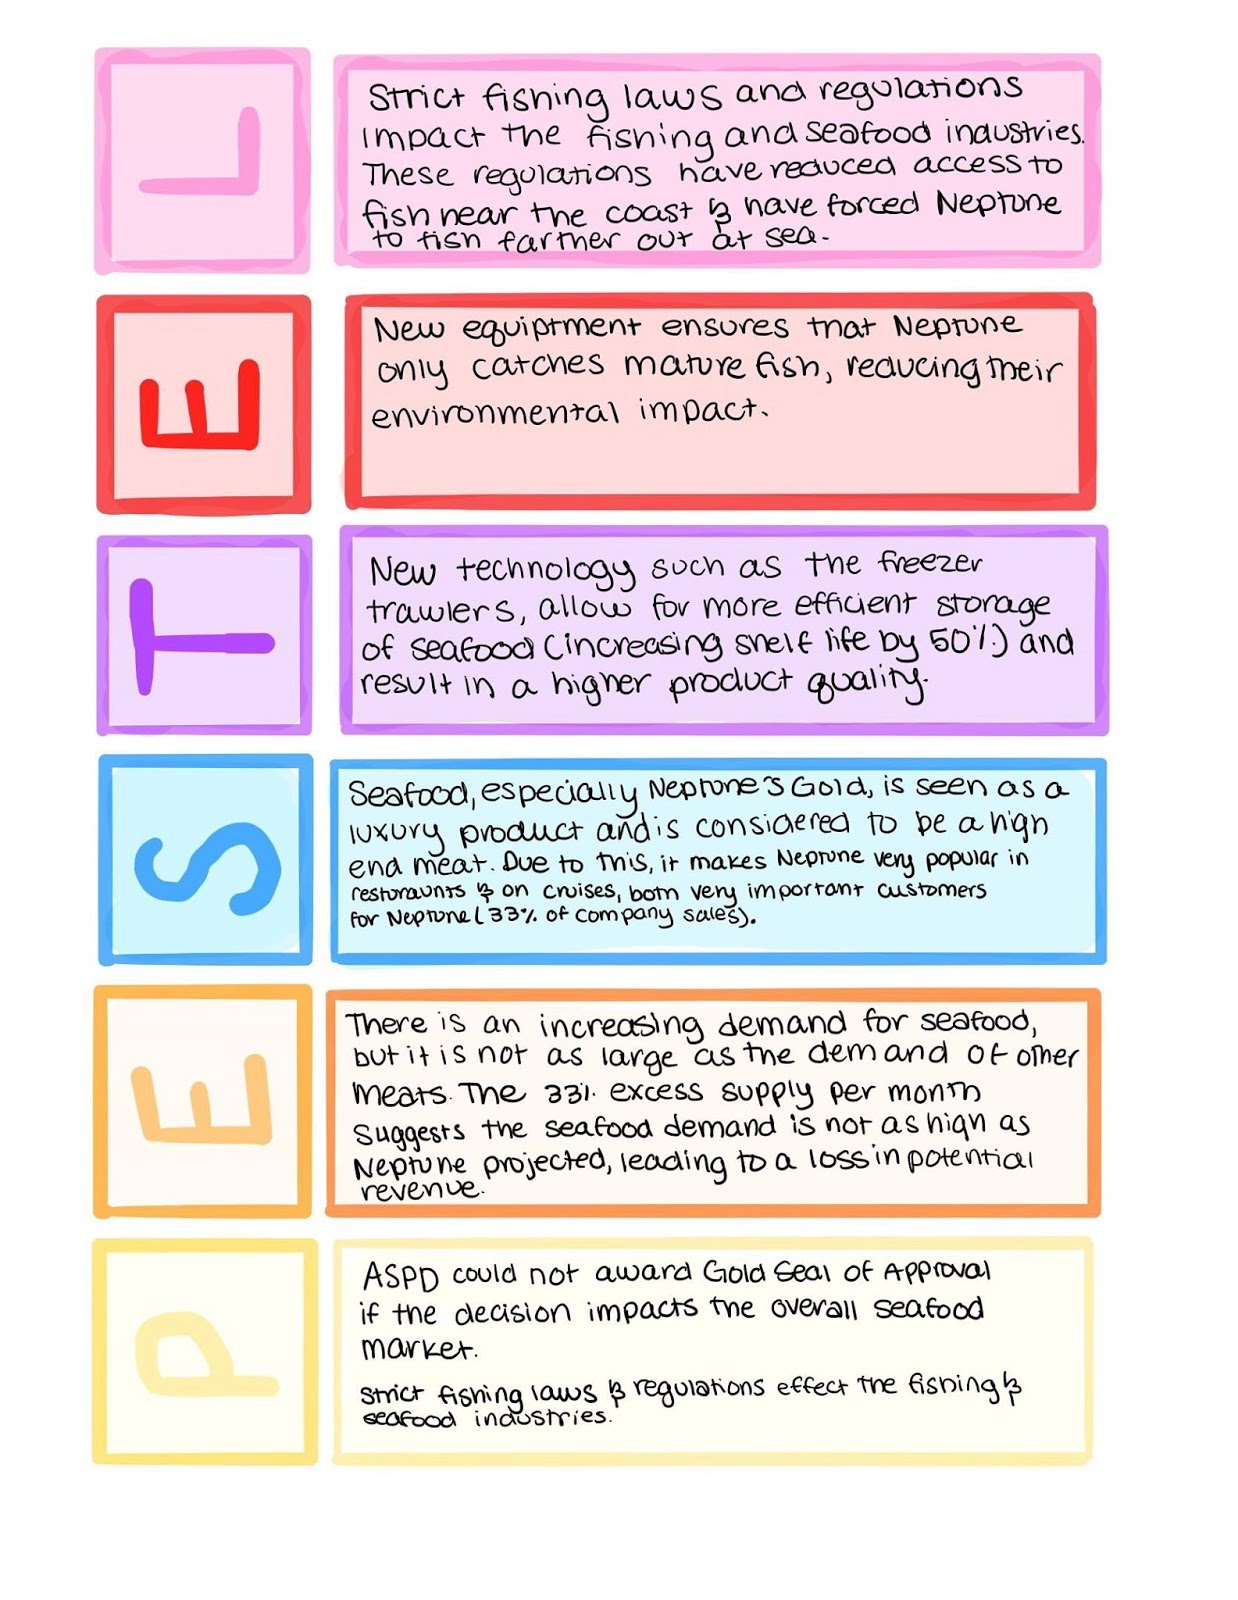 L
Strict fishing laws and regulations
impact the fishing and seafood industries.
These regulations have reduced access to
fish near the coast & have forced Neptune
to fish farther out at sea.
E
New equiptment ensures that Neptune
only catches mature fish, reducing their
environmental impact.
T
New technology such as the freezer
trawlers, allow for more efficient storage
of seafood (increasing shelf life by 50%) and
result in a higher product quality.
S
Seafood, especially Neptune's Gold, is seen as a
luxury product and is considered to be a high
end meat. Due to this, it makes Neptune very popular in
restaraunts & on cruises, both very important customers
for Neptune (33% of company sales).
E
There is an increasing demand for seafood,
but it is not as large as the demand of other
meats. The 33% excess supply per month
suggests the seafood demand is not as high as
Neptune projected, leading to a loss in potential
revenue.
P
ASPD could not award Gold Seal of Approval
if the decision impacts the overall seafood
market.
Strict fishing laws & regulations effect the fishing &
seafood industries.